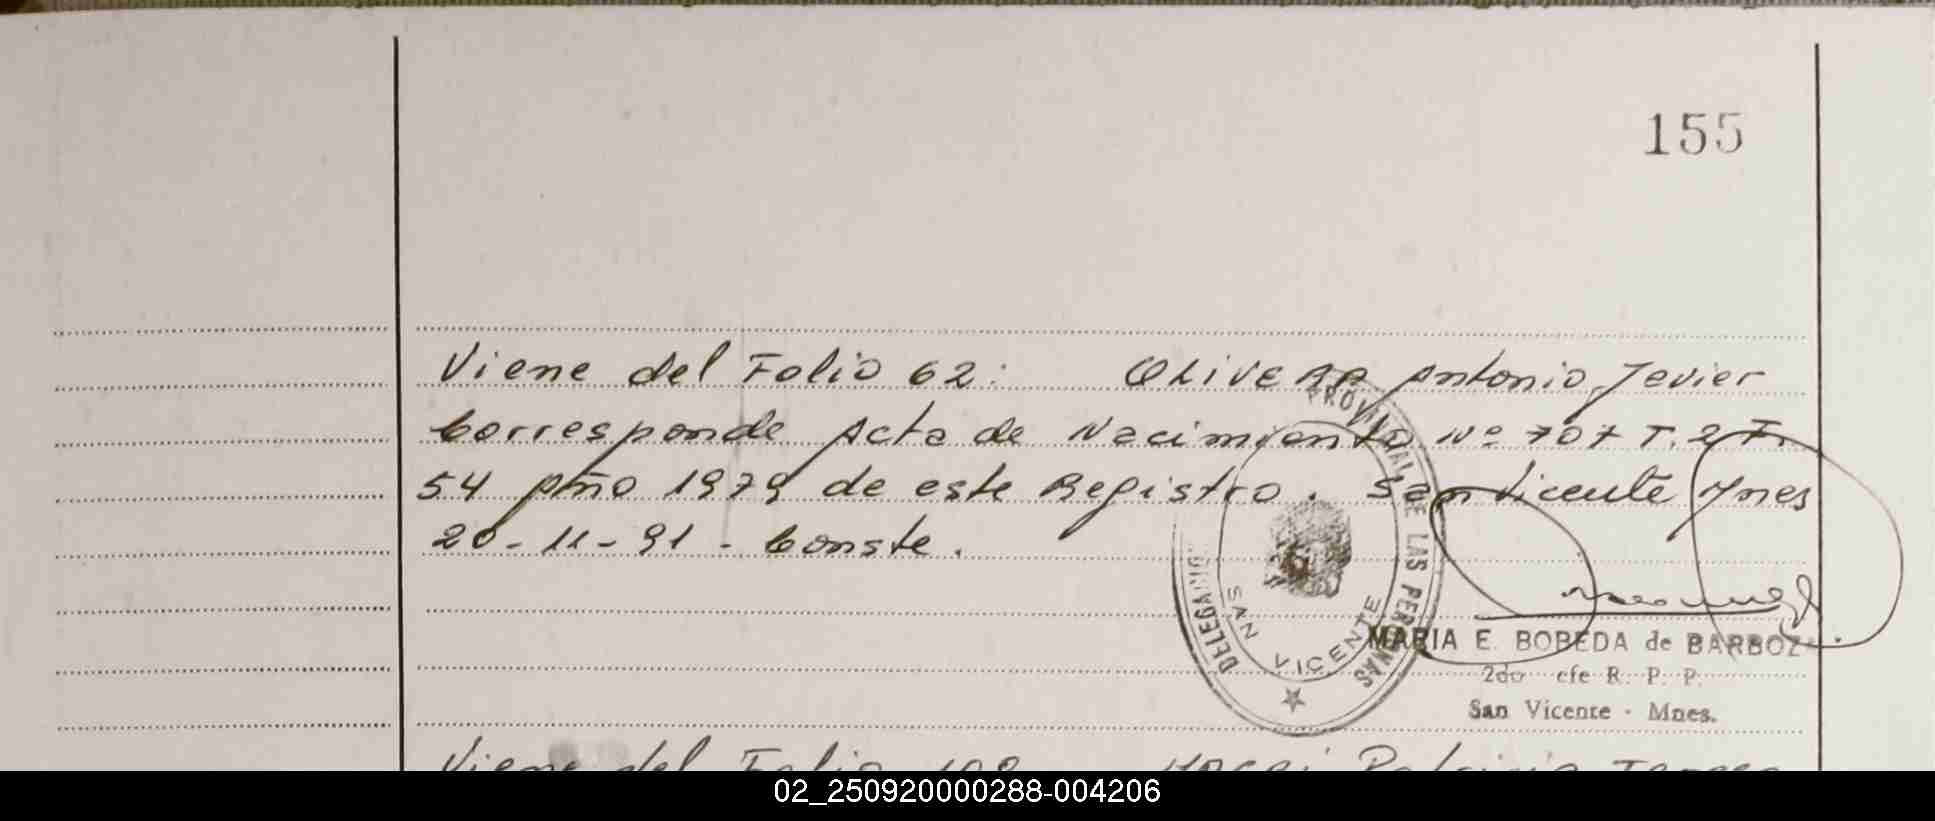 155
Viene del Folio 62: OLIVERA Antonio Javier
Corresponde Acta de Nacimiento Nº 707 T. 2 F.
54 Año 1979 de este Registro. San Vicente Mnes
20-11-91 - Conste.
DELEGACION PROVINCIAL DE LAS PERSONAS
SAN VICENTE
MARIA E. BOBEDA de BARBOZ
2do efe R. P. P.
San Vicente - Mnes.
Viene del Folio
02_250920000288-004206